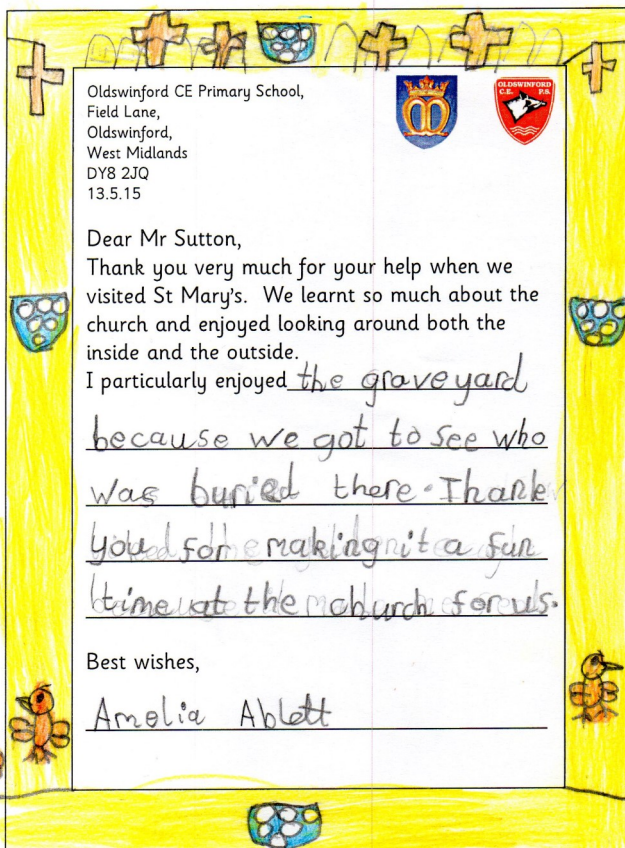 Oldswinford CE Primary School,
Field Lane,
Oldswinford,
West Midlands
DY8 2JQ
13.5.15
OLDSWINFORD
C.E. P.S.
Dear Mr Sutton,
Thank you very much for your help when we
visited St Mary's. We learnt so much about the
church and enjoyed looking around both the
inside and the outside.
I particularly enjoyed the graveyard
because we got to see who
was buried there. Thank
you for making it a fun
time at the church for us.
Best wishes,
Amelia Ablett